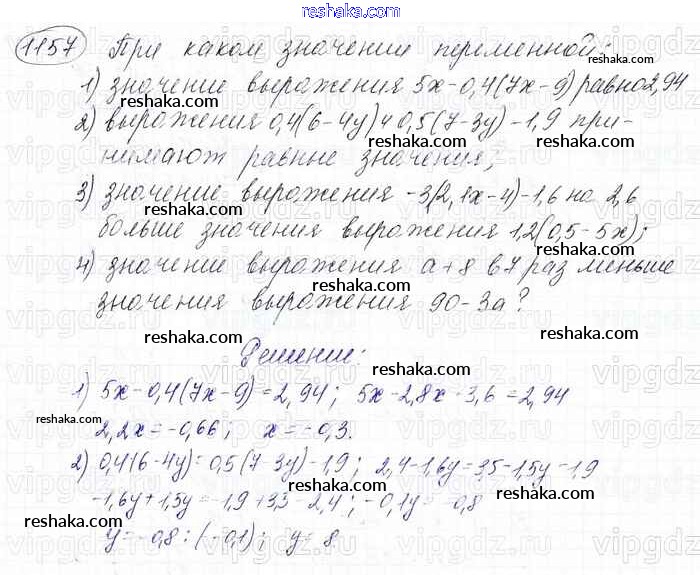 reshaka.ru
1157 При каком значении переменной:
1) значение выражения 5x-0,4(7x-9) равно 2,94
2) выражения 0,4(6-4y) и 0,5(7-3y)-1,9 при-
нимают равные значения;
3) значение выражения -3(2,1x-4)-1,6 на 2,6
больше значения выражения 1,2(0,5-5x);
4) значение выражения a+8 в 7 раз меньше
значения выражения 90-3a?
Решение:
1) 5x-0,4(7x-9)=2,94; 5x-2,8x+3,6=2,94
2,2x=-0,66; x=-0,3.
2) 0,4(6-4y)=0,5(7-3y)-1,9; 2,4-1,6y=3,5-1,5y-1,9
-1,6y+1,5y=-1,9+3,5-2,4; -0,1y=-0,8
y=-0,8:(-0,1); y=8